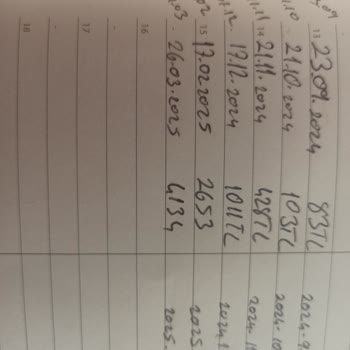 .09 13 23.09.2024 83TL 2024-9
.10 21.10.2024 103TL 2024-10
.11 14 21.11.2024 428TL 2024-11
.12 17.12.2024 1011TL 2024
02 15 17.02.2025 2653 2025
.03 26.03.2025 4134 2025-
16
17
18